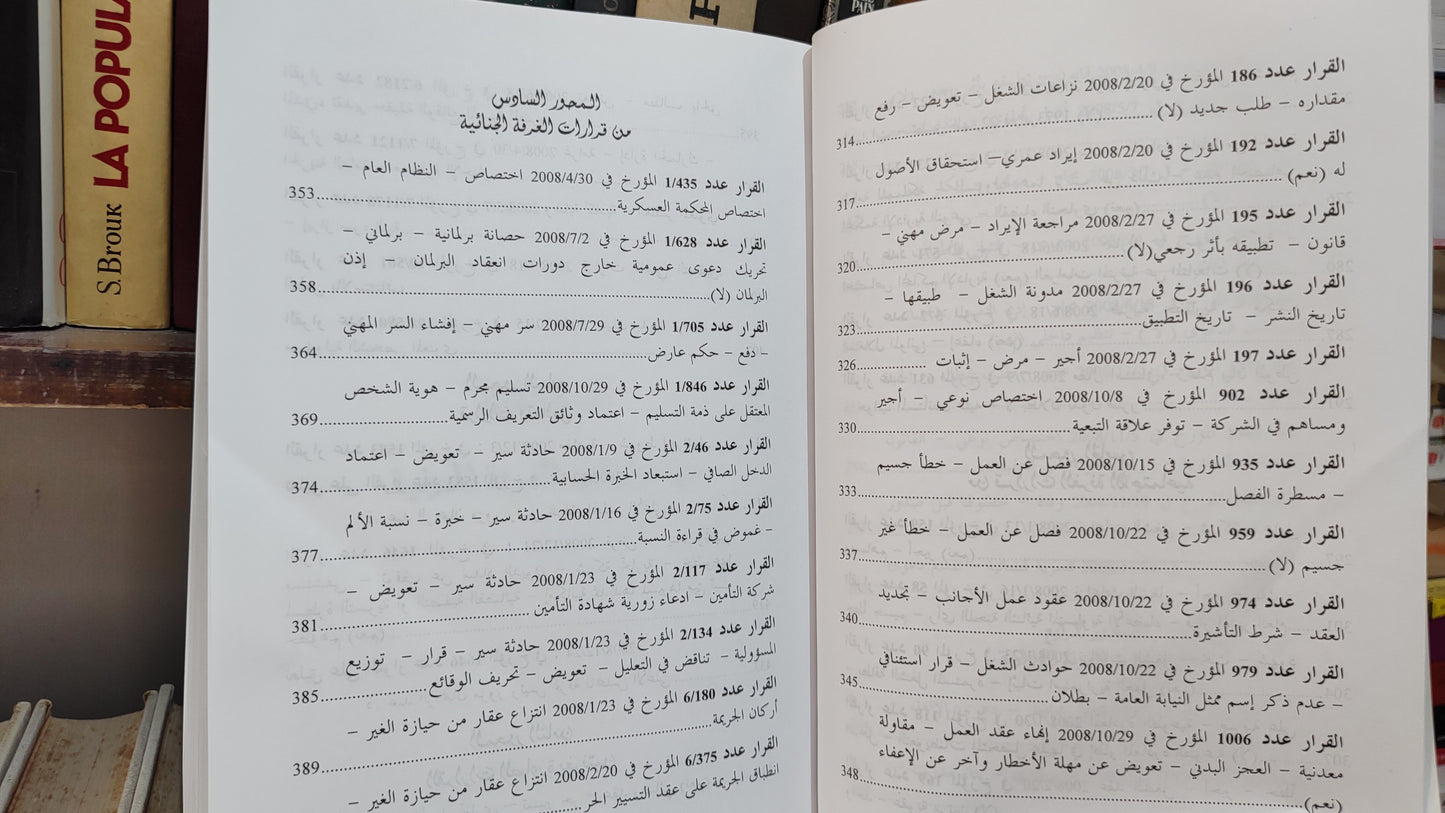 القرار عدد 186 المؤرخ في 2008/2/20 نزاعات الشغل – تعويض – رفع
مقداره – طلب جديد (لا)......314
القرار عدد 192 المؤرخ في 2008/2/20 إيراد عمري– استحقاق الأصول
له (نعم)......317
القرار عدد 195 المؤرخ في 2008/2/27 مراجعة الإيراد – مرض مهني –
قانون – تطبيقه بأثر رجعي(لا)......320
القرار عدد 196 المؤرخ في 2008/2/27 مدونة الشغل – طبيقها –
تاريخ النشر – تاريخ التطبيق......323
القرار عدد 197 المؤرخ في 2008/2/27 أجير – مرض – إثبات ......326
القرار عدد 902 المؤرخ في 2008/10/8 اختصاص نوعي – أجير
ومساهم في الشركة – توفر علاقة التبعية......330
القرار عدد 935 المؤرخ في 2008/10/15 فصل عن العمل – خطأ جسيم
– مسطرة الفصل......333
القرار عدد 959 المؤرخ في 2008/10/22 فصل عن العمل – خطأ غير
جسيم (لا)......337
القرار عدد 974 المؤرخ في 2008/10/22 عقود عمل الأجانب – تحديد
العقد – شرط التأشيرة......340
القرار عدد 979 المؤرخ في 2008/10/22 حوادث الشغل – قرار استئنافي
– عدم ذكر إسم ممثل النيابة العامة – بطلان......345
القرار عدد 1006 المؤرخ في 2008/10/29 إنهاء عقد العمل – مقاولة
معدنية – العجز البدني – تعويض عن مهلة الأخطار وآخر عن الإعفاء
(نعم)......348
المحور السادس
من قرارات الغرفة الجنائية
القرار عدد 1/435 المؤرخ في 2008/4/30 اختصاص – النظام العام –
اختصاص المحكمة العسكرية......353
القرار عدد 1/628 المؤرخ في 2008/7/2 حصانة برلمانية – برلماني –
تحريك دعوى عمومية خارج دورات انعقاد البرلمان – إذن
البرلمان (لا)......358
القرار عدد 1/705 المؤرخ في 2008/7/29 سر مهني – إفشاء السر المهني
– دفع – حكم عارض......364
القرار عدد 1/846 المؤرخ في 2008/10/29 تسليم مجرم – هوية الشخص
المعتقل على ذمة التسليم – اعتماد وثائق التعريف الرسمية......369
القرار عدد 2/46 المؤرخ في 2008/1/9 حادثة سير – تعويض – اعتماد
الدخل الصافي – استبعاد الخبرة الحسابية......374
القرار عدد 2/75 المؤرخ في 2008/1/16 حادثة سير – خبرة – نسبة الألم
– غموض في قراءة النسبة......377
القرار عدد 2/117 المؤرخ في 2008/1/23 حادثة سير – تعويض –
شركة التأمين – ادعاء زورية شهادة التأمين ......381
القرار عدد 2/134 المؤرخ في 2008/1/23 حادثة سير – قرار – توزيع
المسؤولية – تناقض في التعليل – تعويض – تحريف الوقائع......385
القرار عدد 6/180 المؤرخ في 2008/1/23 انتزاع عقار من حيازة الغير –
أركان الجريمة......389
القرار عدد 6/375 المؤرخ في 2008/2/20 انتزاع عقار من حيازة الغير –
انطباق الجريمة على عقد التسيير الحر......
S. BROUK LA POPULA
PAIX